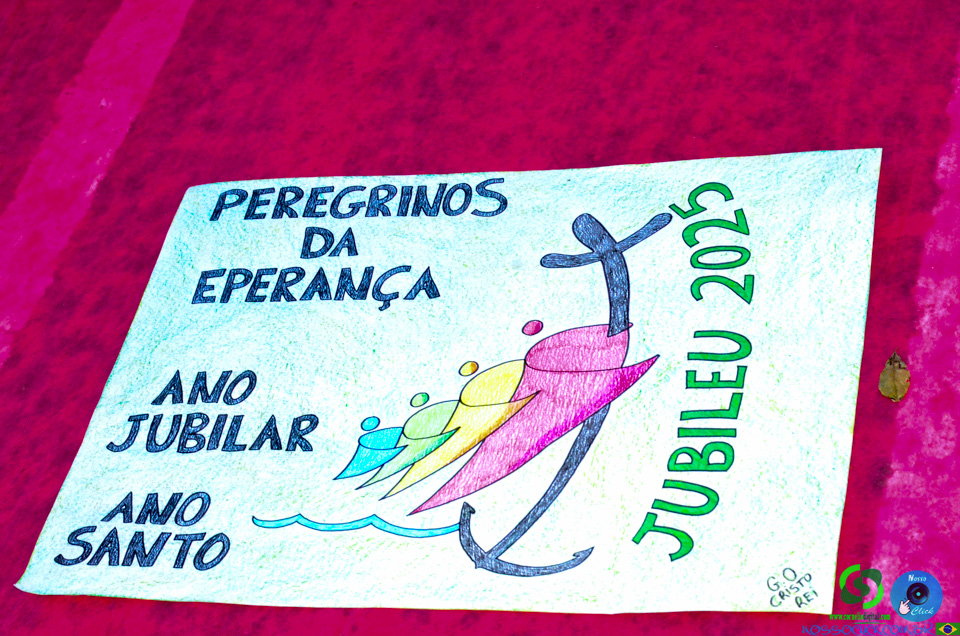 PEREGRINOS
DA
EPERANÇA
ANO
JUBILAR
ANO
SANTO
JUBILEU 2025
G.O
CRISTO
REI
Nosso
Click